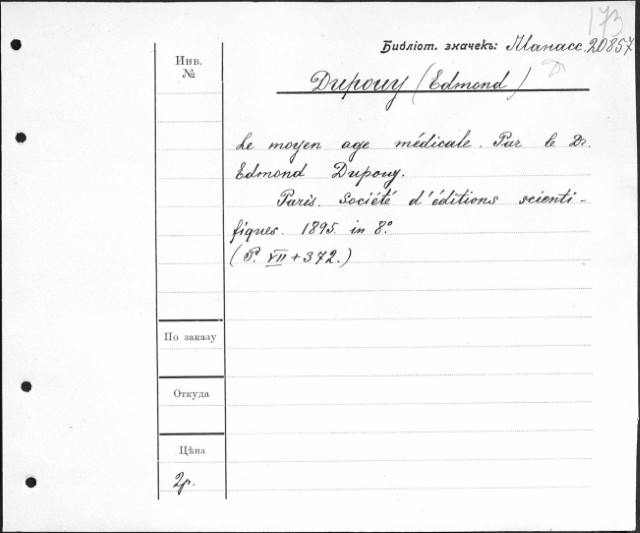 173
Библіот. значекъ: Манасс. 20857
Инв.
№
Dupouy (Edmond)
Le moyen age médicale. Par le Dr.
Edmond Dupouy.
Paris. Société d'éditions scienti-
fiques. 1895. in 8.º
(P. VII + 372.)
По заказу
Откуда
Цѣна
2р.